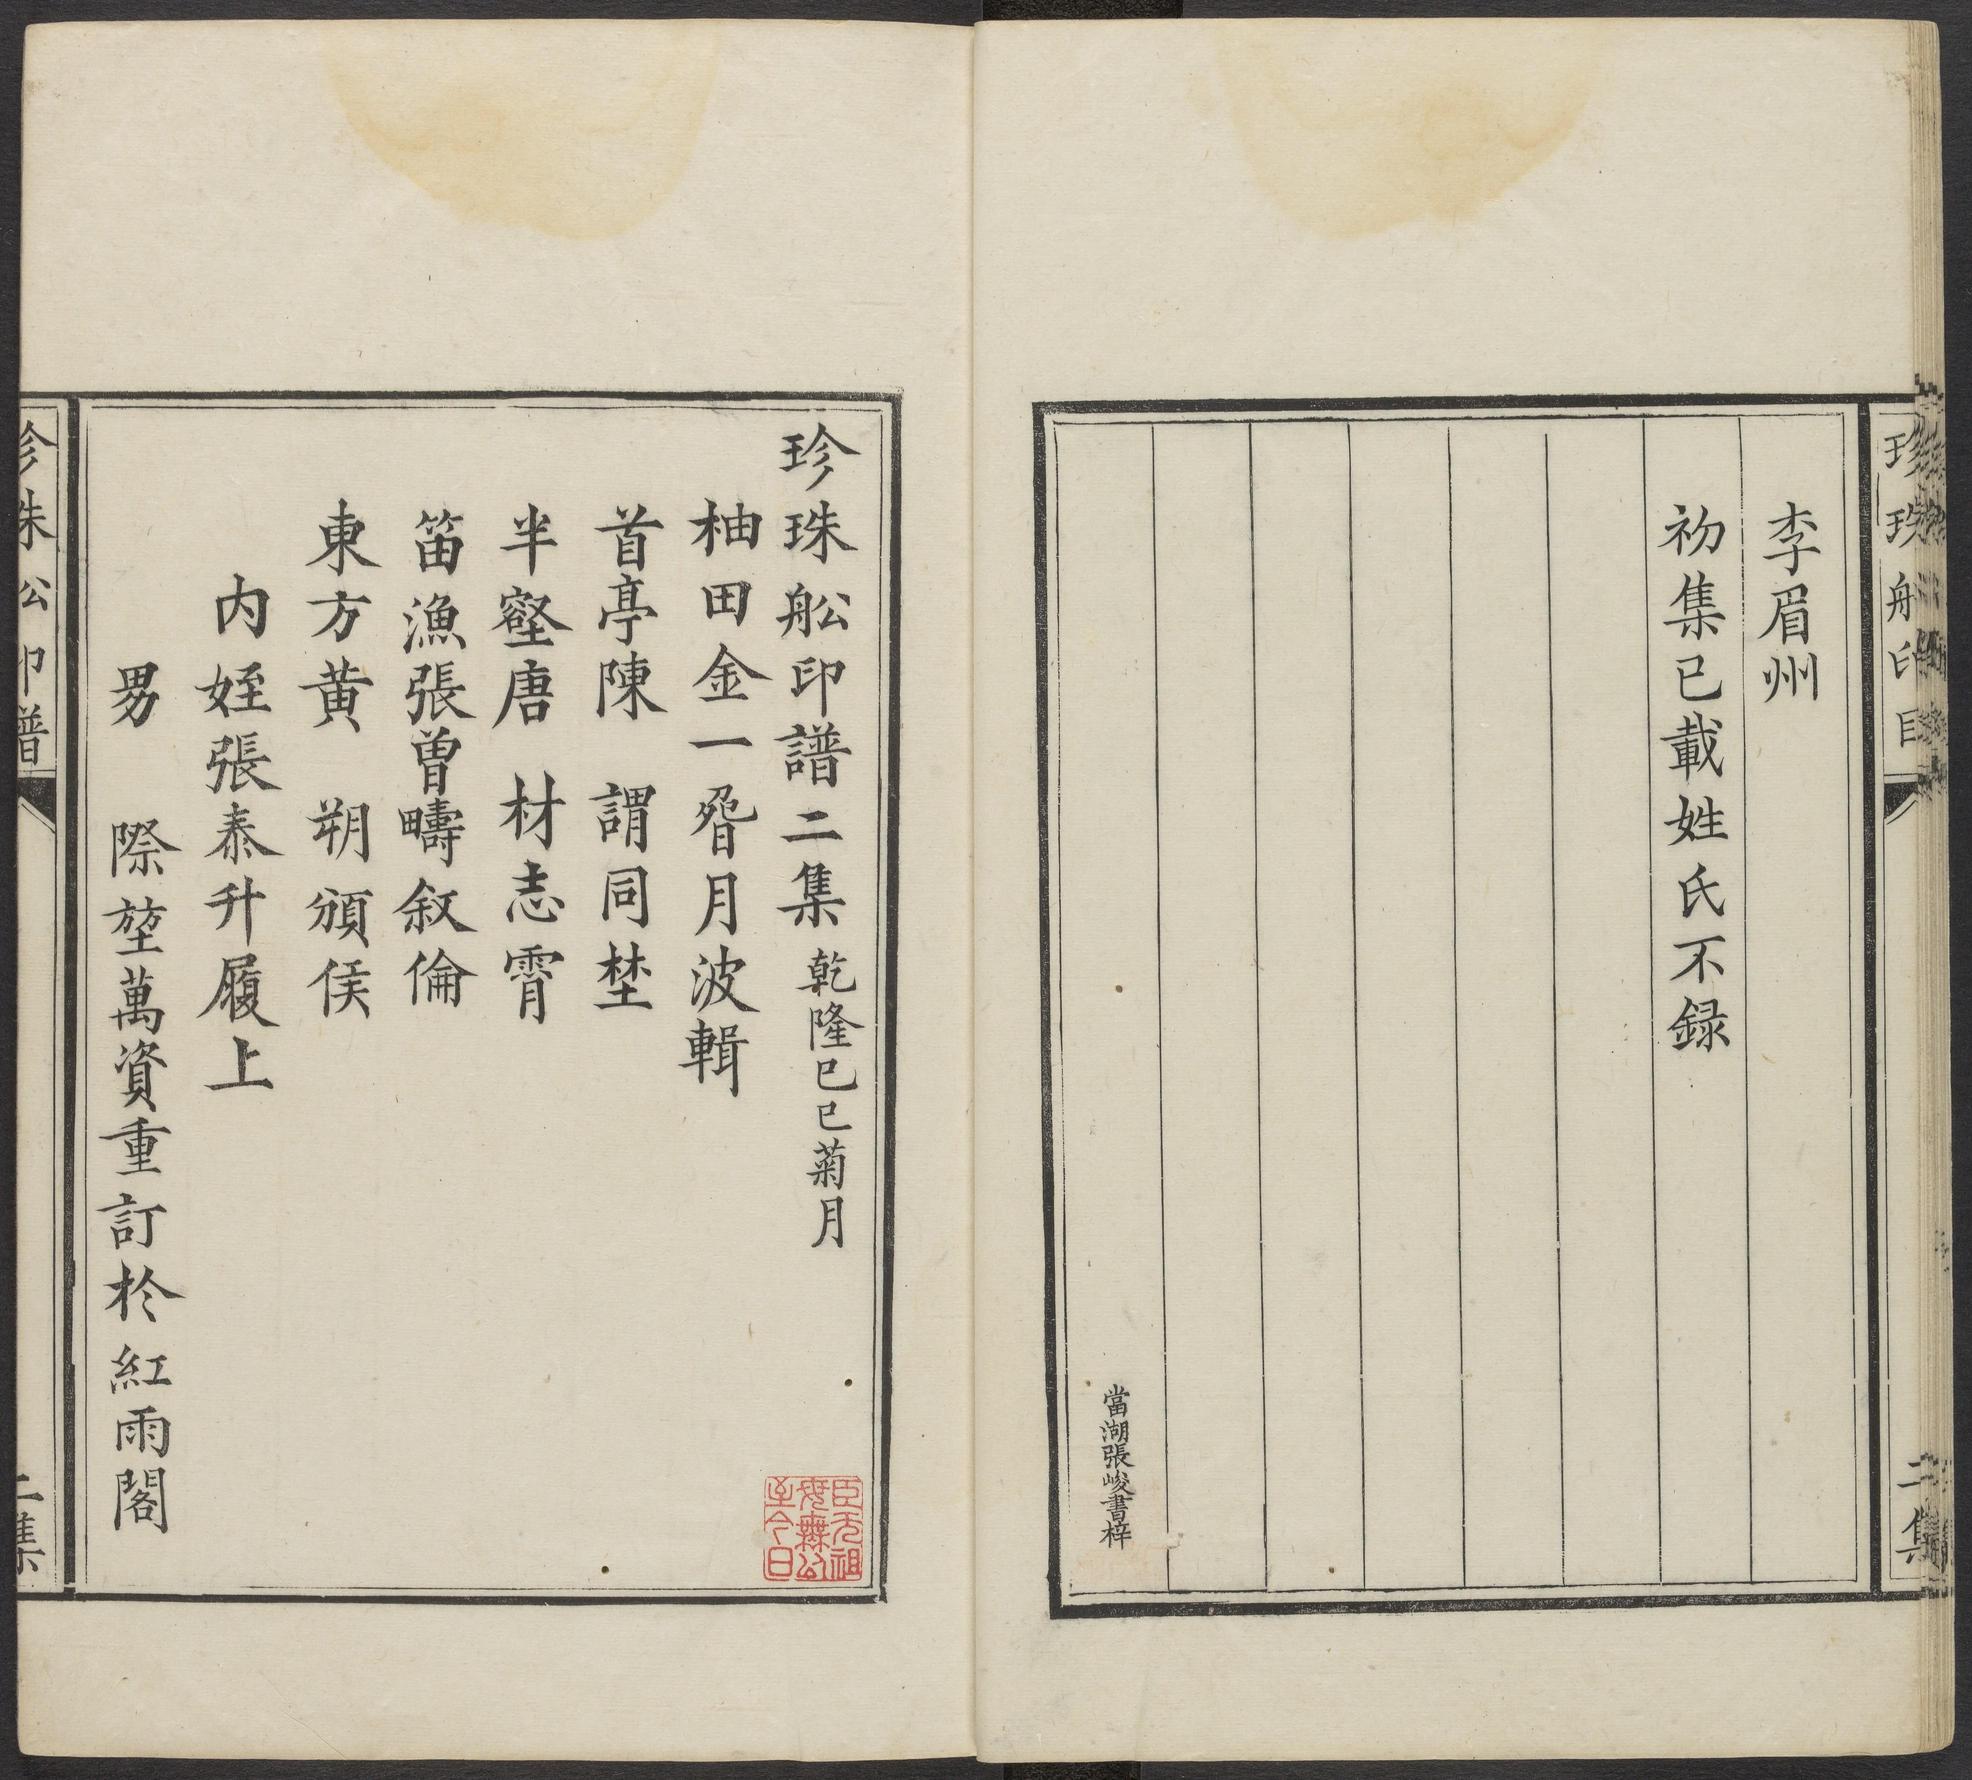 珍珠船印目
二集
李眉州
初集已載姓氏不録
當湖張峻書梓
珍珠舩印譜二集 乾隆已巳菊月
柚田金一疁月波輯
首亭陳 謂同埜
半壑唐 材志霄
笛漁張曽疇叙倫
東方黄 朔頒侯
内姪張泰升履上
男 際堃萬資重訂於紅雨閣
臣无祖
母無以
至今日
珍珠舩印譜
二集